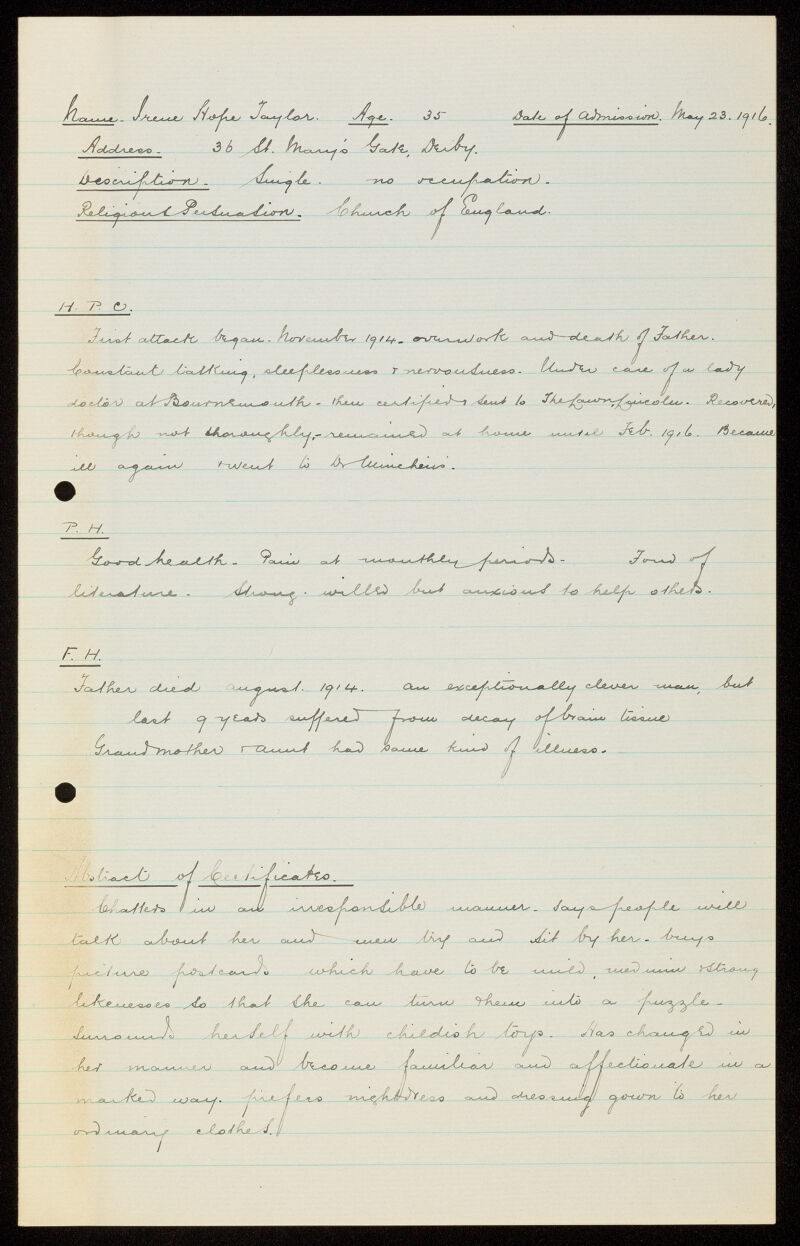 Name. Irene Hope Taylor. Age. 35 Date of Admission. May 23. 1916.
Address. 36 St. Mary's Gate, Derby.
Description. Single. no occupation.
Religious Persuasion. Church of England.
H. P. C.
First attack began. November 1914. overwork and death of Father.
Constant talking, sleeplessness & nervousness. Under care of a lady
doctor at Bournemouth - then certified & sent to The Lawn, Lincoln. Recovered,
though not thoroughly, - remained at home until Feb. 1916. Became
ill again & went to Dr
P. H.
Good health. Pain at monthly periods. Fond of
literature. Strong. willed but anxious to help others.
F. H.
Father died august. 1914. an exceptionally clever man, but
last 9 years suffered from decay of brain tissue
Grandmother & aunt had same kind of illness.
Abstract of Certificates.
Chatters in an irresponsible manner. says people will
talk about her and men try and sit by her. buys
picture postcards which have to be mild, medium & strong
likenesses so that she can turn them into a puzzle -
Surrounds herself with childish toys. Has changed in
her manner and become familiar and affectionate in a
marked way. prefers nightdress and dressing gown to her
ordinary clothes.